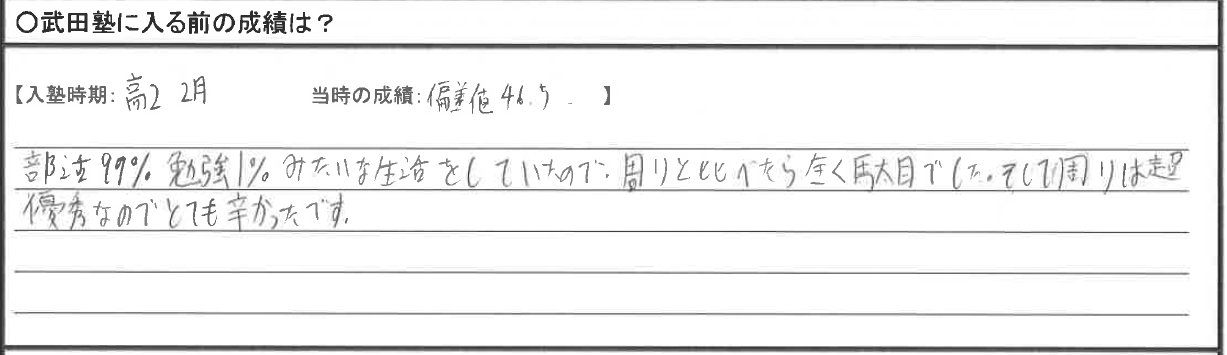 ○武田塾に入る前の成績は？
【入塾時期: 高2 2月 当時の成績: 偏差値 46.5. 】
部活99%勉強1%みたいな生活をしていたので、周りと比べたら全く駄目でした。そして周りは超
優秀なのでとても辛かったです。